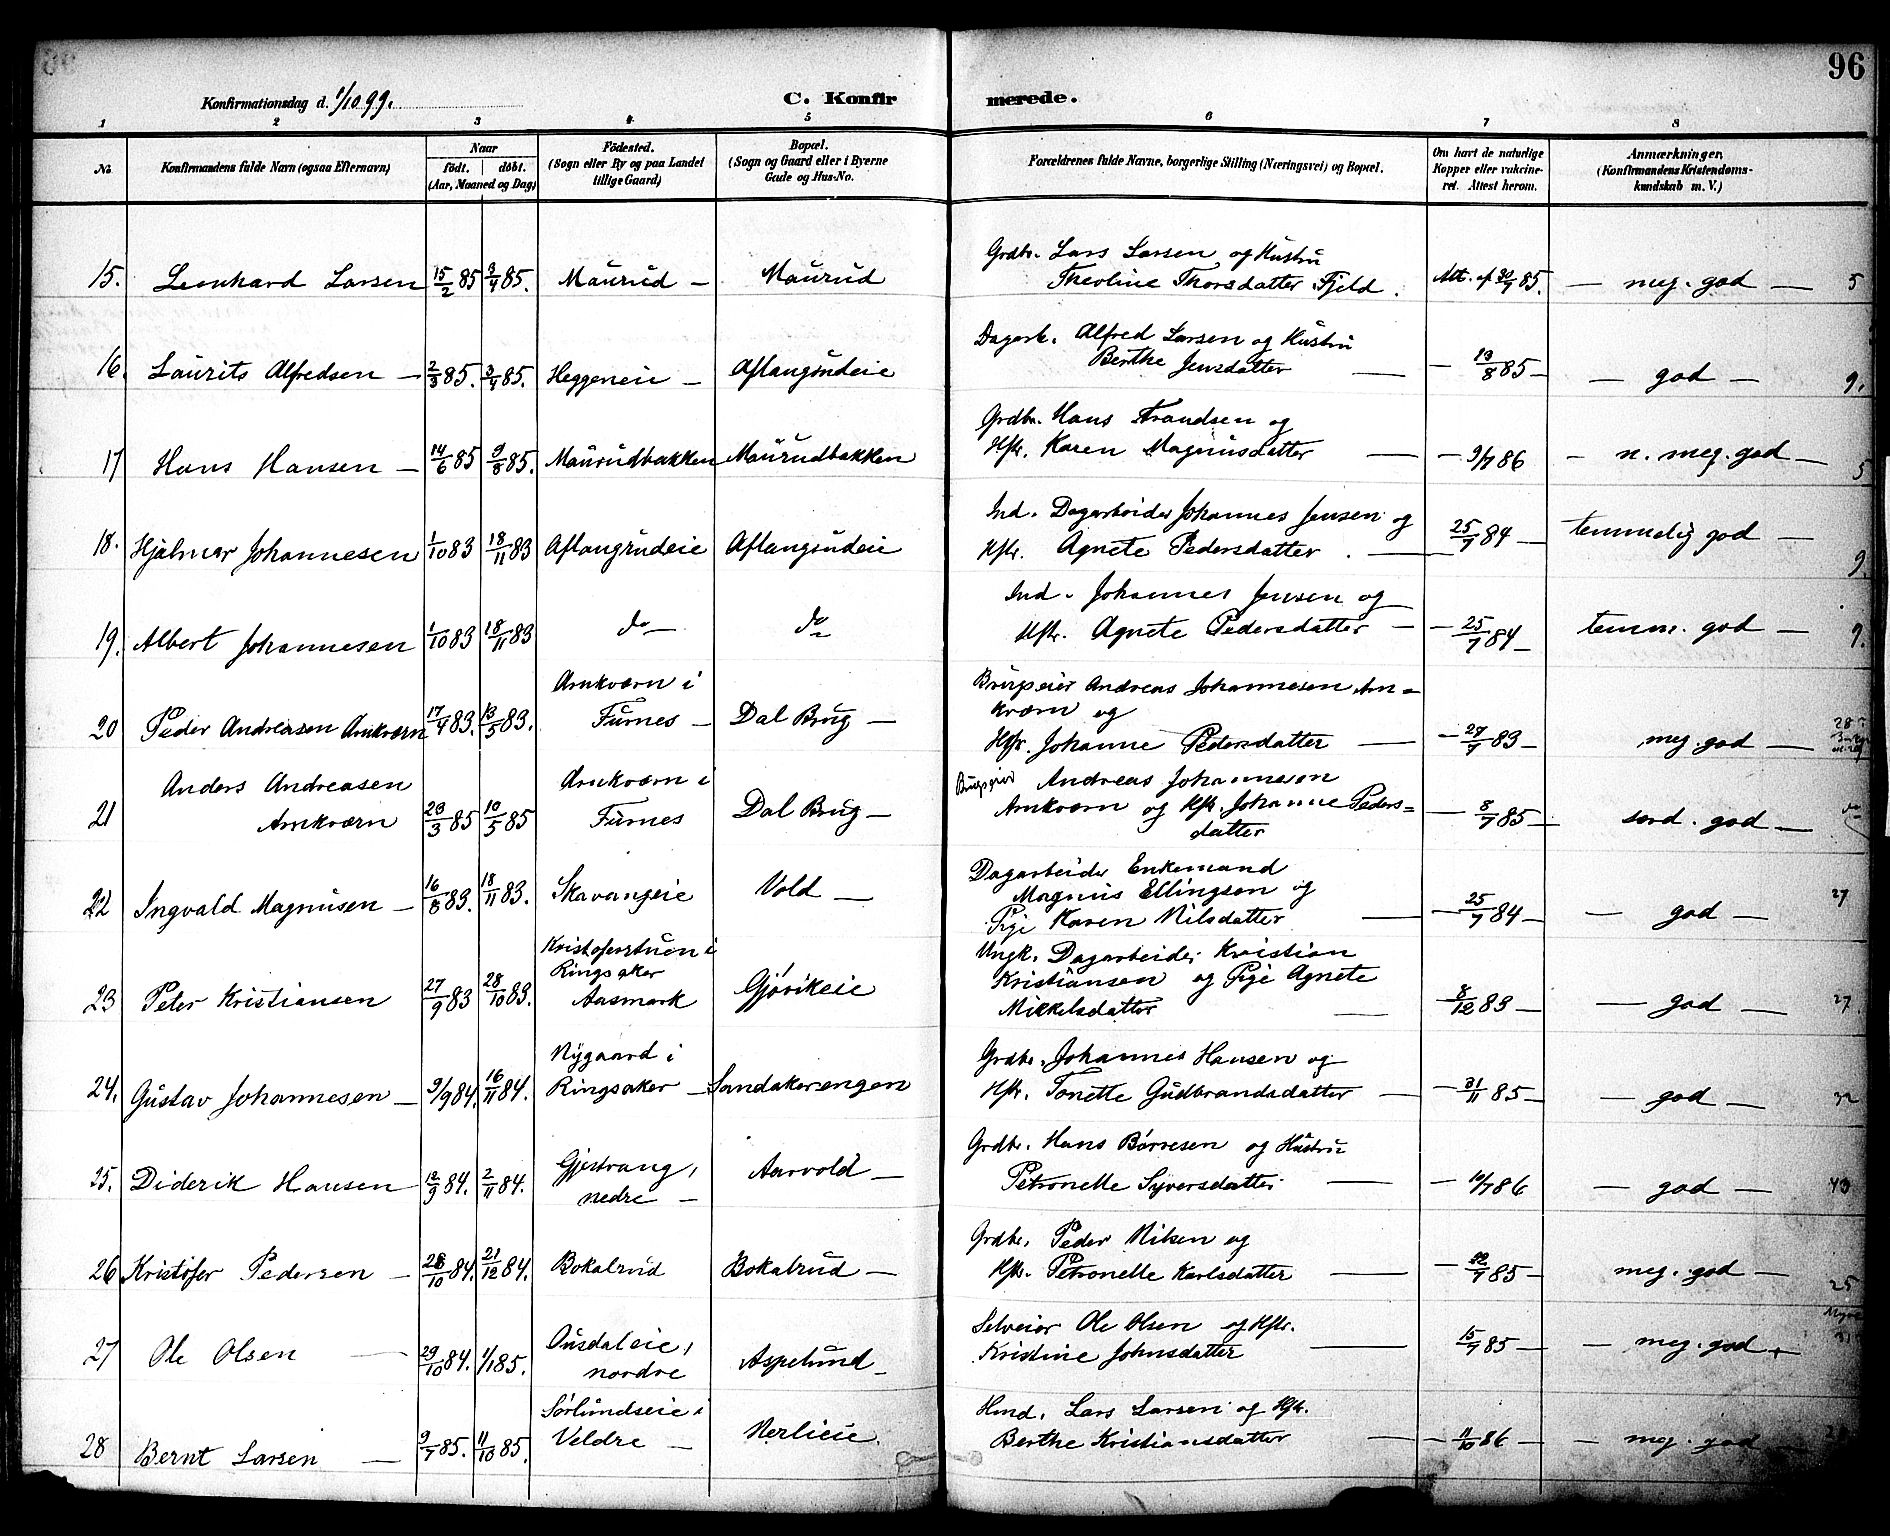 96
Konfirmationsdag d. 1/10 99.
C. Konfirmerede.
1 2 3 4 5 6 7 8
No. Konfirmandens fulde Navn (ogsaa Efternavn) Naar født. døbt. (Aar, Maaned og Dag) Fødested. (Sogn eller By og paa Landet tillige Gaard) Bopæl. (Sogn og Gaard eller i Byerne Gade og Hus-No. Forældrenes fulde Navne, borgerlige Stilling (Næringsvei) og Bopæl. Om havt de naturlige Kopper eller vakcineret. Attest herom. Anmærkninger. (Konfirmandens Kristendomskundskab m. V.)
15. Leonhard Larsen 15/2 85 3/4 85. Maurud — Maurud Grdbr. Lars Larsen og Hustru
Theoline Thorsdatter Fjeld. Att. af 30/7 85. — meg. god — 5
16. Laurits Alfredsen — 2/3 85. 3/4 85. Heggeneie — Aflangrudeie Dagarb. Alfred Larsen og Hustru
Berthe Jensdatter — — 13/8 85 — — god — 9.
17 Hans Hansen — 14/6 85 9/8 85. Maurudbakken Maurudbakken Grdbr. Hans Frandsen og
Hstr. Karen Magnusdatter — — 9/7 86 — n. meg. god — 5
18. Hjalmar Johannesen 1/10 83 18/11 83 Aflangrudeie Aflangrudeie Ind. Dagarbeider Johannes Jensen og
Hstr. Agnete Pedersdatter. — 25/7 84 — temmelig god — 9.
19. Albert Johannesen 1/10 83 18/11 83 do — do Ind. Johannes Jensen og
Hstr. Agnete Pedersdatter — — 25/7 84 — temm. god — 9.
20 Peder Andreasen Arnkværn 17/4 83. 13/5 83. Arnkværn i
Furnes — Dal Brug — Brugseier Andreas Johannesen Arn=
kværn og
Hstr. Johanne Pedersdatter — — 27/7 83 — meg. god —
21 Anders Andreasen
Arnkværn 23/3 85 10/5 85 Arnkværn i
Furnes Dal Brug — Brugseier Andreas Johannesen
Arnkværn og Hstr. Johanne Peders=
datter — 8/7 85 — særd. god — do
22 Ingvald Magnusen — 16/8 83. 18/11 83. Skavangeie Vold — Dagarbeider Enkemand
Magnus Ellingsen og
Pige Karen Nilsdatter — — 25/7 84 — — god — 27
23 Peter Kristiansen 27/9 83 28/10 83. Kristoferstuen i
Ringsaker
Aasmark Gjøvikeie Ungk. Dagarbeider Kristian
Kristiansen og Pige Agnete
Mikkelsdatter — — 8/12 83 — — god — 27
24. Gustav Johannesen — 9/9 84. 16/11 84. Nygaard i
Ringsaker — Sandakerengen Grdbr. Johannes Hansen og
Hstr. Tonette Gudbrandsdatter — — 31/11 85 — — god — 32
25. Diderik Hansen 12/9 84. 2/11 84. Gjestvang,
nedre — Aarvold — Grdbr. Hans Børresen og Hustru
Petronelle Syversdatter — — 10/7 86 — god — 43
26 Kristofer Pedersen — 28/10 84. 21/12 84. Bokalrud Bokalrud — Grdbr. Peder Nilsen og
Hstr. Petronelle Karlsdatter — — 7 85 — meg. god — 25
27 Ole Olsen — 29/10 84. 1/1 85. Ousdaleie,
nordre Aspelund — Selveier Ole Olsen og Hstr.
Kristine Johnsdatter — 15/7 85 — — meg. god
28 Bernt Larsen — 9/7 85. 11/10 85. Sørlundseie i
Veldre — Nerlieie. Hmd. Lars Larsen og Hstr.
Berthe Kristiansdatter — — 11/10 86 — — meg. god